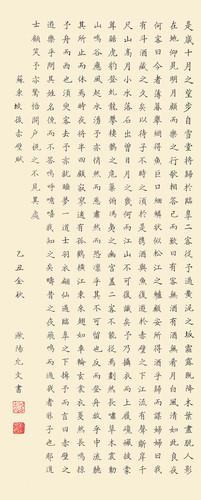 是歲十月之望步自雪堂將歸於臨皋二客從予過黃泥之坂霜露既降木葉盡脫人影
在地仰見明月顧而樂之行歌相答已而歎曰有客無酒有酒無肴月白風清如此良夜
何客曰今者薄暮舉網得魚巨口細鱗狀似松江之鱸顧安所得酒乎歸而謀諸婦婦曰我
有斗酒藏之久矣以待子不時之須於是攜酒與魚復遊於赤壁之下江流有聲斷岸千
尺山高月小水落石出曾日月之幾何而江山不可復識矣予乃攝衣而上履巉巖披蒙
茸踞虎豹登虬龍攀棲鶻之危巢俯馮夷之幽宮蓋二客不能從焉劃然長嘯草木震動
山鳴谷應風起水涌予亦悄然而悲肅然而恐凜乎其不可留也反而登舟放乎中流聽
其所止而休焉時夜將半四顧寂寥適有孤鶴橫江東來翅如車輪玄裳縞衣戛然長鳴掠
予舟而西也須臾客去予亦就睡夢一道士羽衣翩仙過臨皋之下揖予而言曰赤壁之
遊樂乎問其姓名俛而不答嗚呼噫嘻我知之矣疇昔之夜飛鳴而過我者非子也耶道
士顧笑予亦驚悟開戶視之不見其處
蘇東坡後赤壁賦
乙丑金秋
歐陽九文書